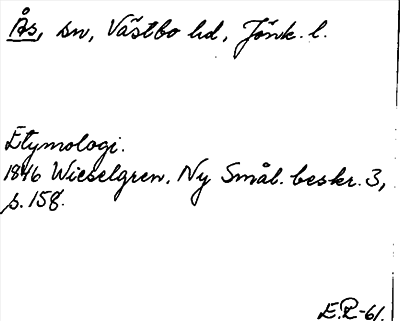 Ås, sn, Västbo hd, Jönk. l.
Etymologi.
1846 Wieselgren. Ny Smål. beskr. 3,
s. 158.
E.P.-61.